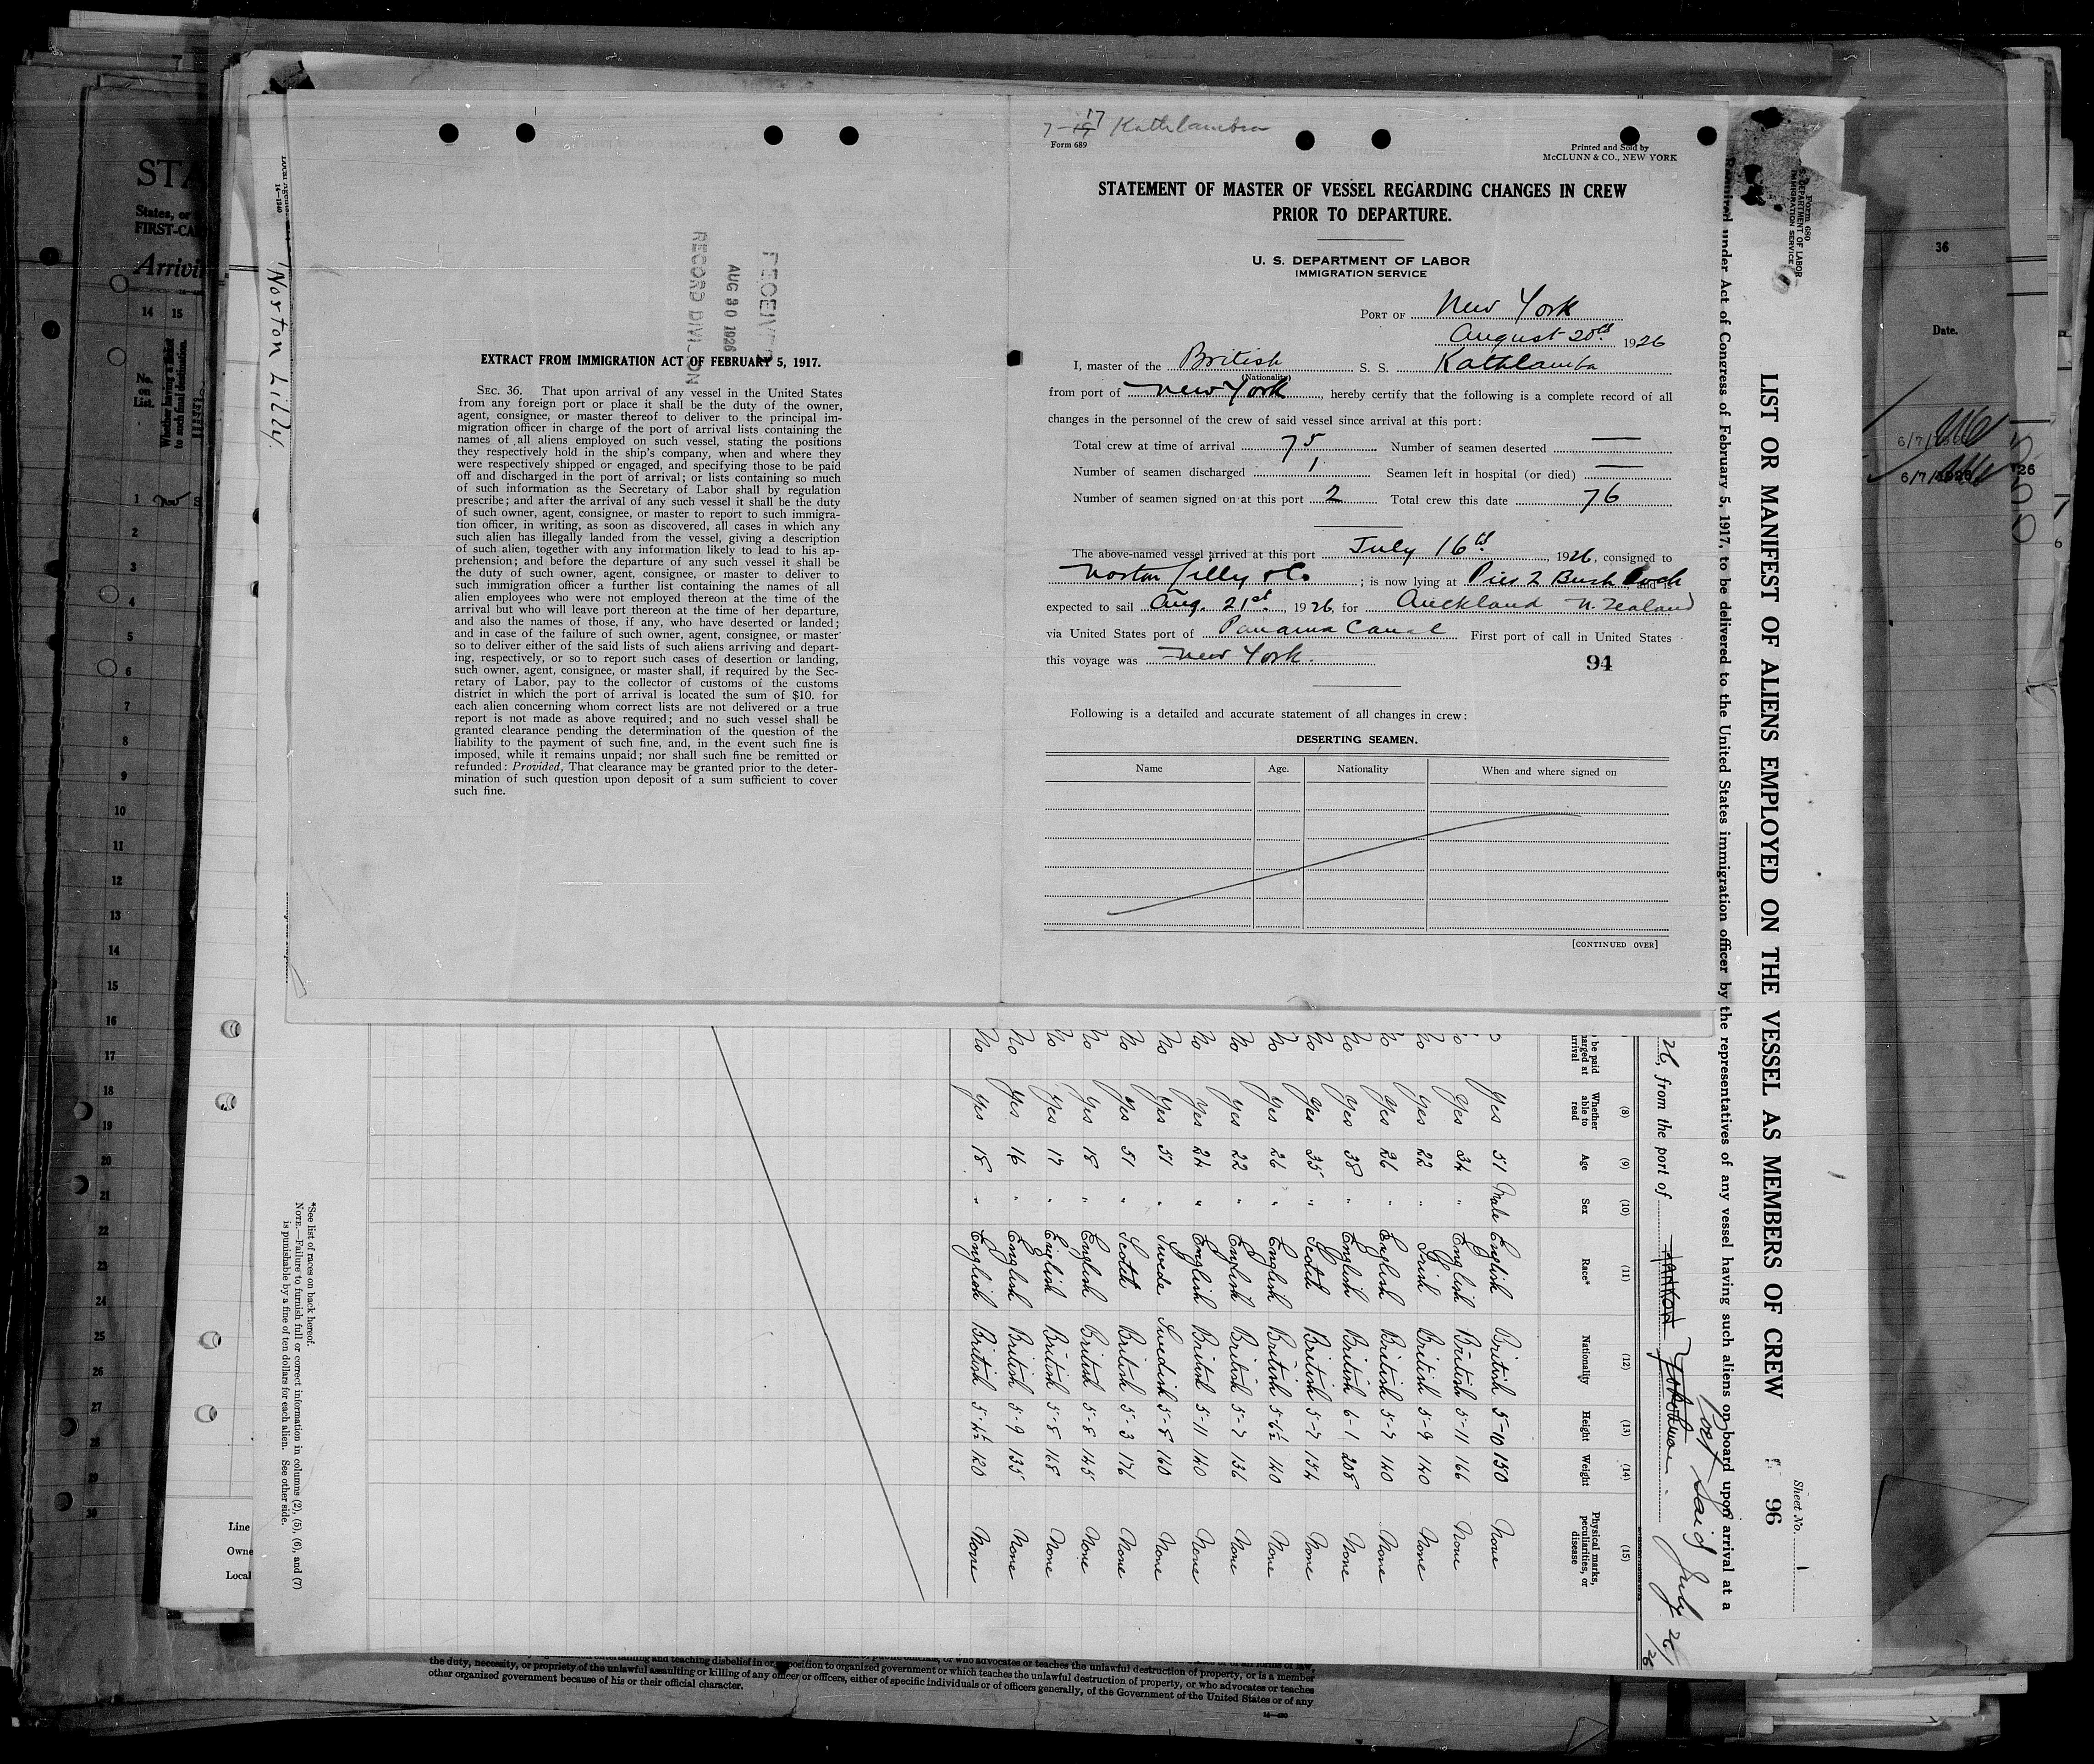 7-17 Kathlamba
Form 689
Printed and Sold by
McCLUNN & CO., NEW YORK
STATEMENT OF MASTER OF VESSEL REGARDING CHANGES IN CREW
PRIOR TO DEPARTURE.
U. S. DEPARTMENT OF LABOR
IMMIGRATION SERVICE
PORT OF New York
August 20th 1926
I, master of the British S. S. Kathlamba
(Nationality)
from port of New York, hereby certify that the following is a complete record of all
changes in the personnel of the crew of said vessel since arrival at this port:
Total crew at time of arrival 75 Number of seamen deserted —
Number of seamen discharged 1 Seamen left in hospital (or died) —
Number of seamen signed on at this port 2 Total crew this date 76
The above-named vessel arrived at this port July 16th, 1926, consigned to
Norton Lilly & Co; is now lying at Pier 2 Bush Dock and is
expected to sail Aug. 21st, 1926, for Auckland N. Zealand
via United States port of Panama Canal First port of call in United States
this voyage was New York.
94
Following is a detailed and accurate statement of all changes in crew:
DESERTING SEAMEN.
Name Age. Nationality When and where signed on
[CONTINUED OVER]
RECEIVED
AUG 30 1926
RECORD DIVISION
EXTRACT FROM IMMIGRATION ACT OF FEBRUARY 5, 1917.
SEC. 36. That upon arrival of any vessel in the United States
from any foreign port or place it shall be the duty of the owner,
agent, consignee, or master thereof to deliver to the principal im-
migration officer in charge of the port of arrival lists containing the
names of all aliens employed on such vessel, stating the positions
they respectively hold in the ship's company, when and where they
were respectively shipped or engaged, and specifying those to be paid
off and discharged in the port of arrival; or lists containing so much
of such information as the Secretary of Labor shall by regulation
prescribe; and after the arrival of any such vessel it shall be the duty
of such owner, agent, consignee, or master to report to such immigra-
tion officer, in writing, as soon as discovered, all cases in which any
such alien has illegally landed from the vessel, giving a description
of such alien, together with any information likely to lead to his ap-
prehension; and before the departure of any such vessel it shall be
the duty of such owner, agent, consignee, or master to deliver to
such immigration officer a further list containing the names of all
alien employees who were not employed thereon at the time of the
arrival but who will leave port thereon at the time of her departure,
and also the names of those, if any, who have deserted or landed;
and in case of the failure of such owner, agent, consignee, or master
so to deliver either of the said lists of such aliens arriving and depart-
ing, respectively, or so to report such cases of desertion or landing,
such owner, agent, consignee, or master shall, if required by the Sec-
retary of Labor, pay to the collector of customs of the customs
district in which the port of arrival is located the sum of $10. for
each alien concerning whom correct lists are not delivered or a true
report is not made as above required; and no such vessel shall be
granted clearance pending the determination of the question of the
liability to the payment of such fine, and, in the event such fine is
imposed, while it remains unpaid; nor shall such fine be remitted or
refunded: Provided, That clearance may be granted prior to the deter-
mination of such question upon deposit of a sum sufficient to cover
such fine.
Norton Lilly.
14-1240
Form 680
U. S. DEPARTMENT OF LABOR
IMMIGRATION SERVICE
Sheet No. 1
LIST OR MANIFEST OF ALIENS EMPLOYED ON THE VESSEL AS MEMBERS OF CREW 96
Required under Act of Congress of February 5, 1917, to be delivered to the United States immigration officer by the representatives of any vessel having such aliens on board upon arrival at a
Port Said July 26/26
26, from the port of Yokohama
(8) (9) (10) (11) (12) (13) (14) (15)
be paid
arged at
arrival
Whether able to read Age Sex Race* Nationality Height Weight Physical marks, peculiarities, or disease
Yes 51 Male English British 5-10 150 None
No Yes 34 " English British 5-11 166 None
No Yes 22 " Irish British 5-9 140 None
No Yes 26 " English British 5-7 140 None
No Yes 38 " English British 6-1 208 None
No Yes 35 " Scotch British 5-7 134 None
No Yes 26 " English British 5-6½ 140 None
No Yes 22 " English British 5-7 136 None
No Yes 24 " English British 5-11 140 None
No Yes 51 " Swede Swedish 5-8 160 None
No Yes 51 " Scotch British 5-3 176 None
No Yes 18 " English British 5-8 145 None
No Yes 17 " English British 5-8 168 None
No Yes 16 " English British 5-9 135 None
No Yes 18 " English British 5-4½ 120 None
*See list of races on back hereof.
NOTE.—Failure to furnish full or correct information in columns (2), (5), (6), and (7)
is punishable by a fine of ten dollars for each alien. See other side.
STA
States, or
FIRST-CA
Arrivi
14 15
No.
on
List.
Whether having a ticket
to such final destination.
1
2
3
4
5
6
7
8
9
10
11
12
13
14
15
16
17
18
19
20
21
22
23
24
25
26
27
28
29
30
Line
Owne
Local
36
Date.
the duty, necessity, or propriety of the unlawful assaulting or killing of any officer or officers, either of specific individuals or of officers generally, of the Government of the United States or of any
other organized government because of his or their official character.